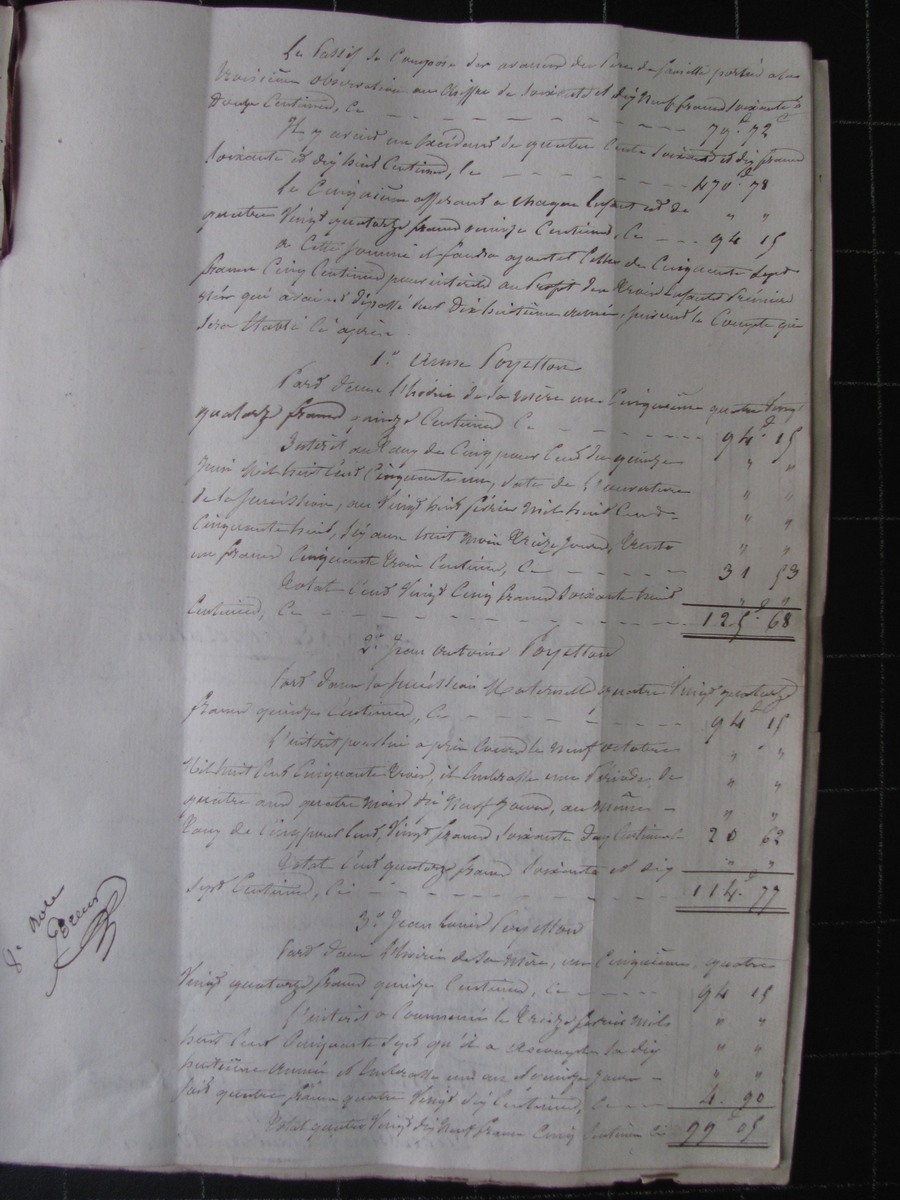 Le Passif se Compose des avances du Père de famille porté à la
troisième observation au chiffre de soixante et dix neuf francs soixante &
Douze Centimes, Ce — — — — — 79.f 72c
Il y avait un excédant de quatre cents soixante et dix francs
soixante et dix huit Centimes, Ce — — — — — 470.f 78
Le Cinquième afferant à chaque Enfant est de " "
quatre Vingt quatorze francs quinze Centimes, Ce — — — 94 15
à Cette somme il faudra ajouter Celle de Cinquante sept
francs Cinq Centimes pour intérêt au Profit des trois Enfants Premiers
qui avaient dépassé leur Dix huitième année, suivant le Compte qui
sera Etabli Ci après.
1.° Poyetton
Part dans l'hoirie de sa mère un Cinquième quatre Vingt
quatorze francs quinze Centimes Ce — — — — 94.f 15
Intérêt au Taux de Cinq pour Cent du quinze " "
Juin Mil huit Cent Cinquante un, date de l'ouverture " "
de la succession, au Vingt huit février mil huit Cent — " "
Cinquante huit, six ans huit mois treize jours, trente " "
un francs Cinquante trois Centimes, Ce — — — — 31 53
Total Cent Vingt Cinq francs soixante huit " "
Centimes, Ce — — — — — 125.f 68
2.° Jean Antoine Poyetton
Part dans la succession Maternelle quatre Vingt quatorze
francs quinze Centimes, Ce — — — — 94 15
L'intérêt pour lui a pris Cours le neuf octobre " "
Mil huit Cent Cinquante trois, il Embrasse une Période de " "
quatre ans quatre mois dix Neuf Jours, au même — " "
Taux de Cinq pour Cent, Vingt francs soixante deux Centimes 20 62
Total Cent quatorze francs soixante et dix " "
sept Centimes, Ce — — — — 114.f 77
3.° Jean Louis Poyetton
Part dans l'hoirie de sa Mère, un Cinquième, quatre
Vingt quatorze francs quinze Centimes, Ce — — — — 94 15
L'intérêt a Commencé le treize février mil " "
huit Cent Cinquante Sept qu'il a accompli sa dix " "
huitième Année et Embrasse un an et quinze jours — " "
soit quatre francs quatre Vingt dix Centimes, Ce — — 4. 90
Total quatre Vingt dix Neuf francs Cinq Centimes Ci 99.f 05
8e Role